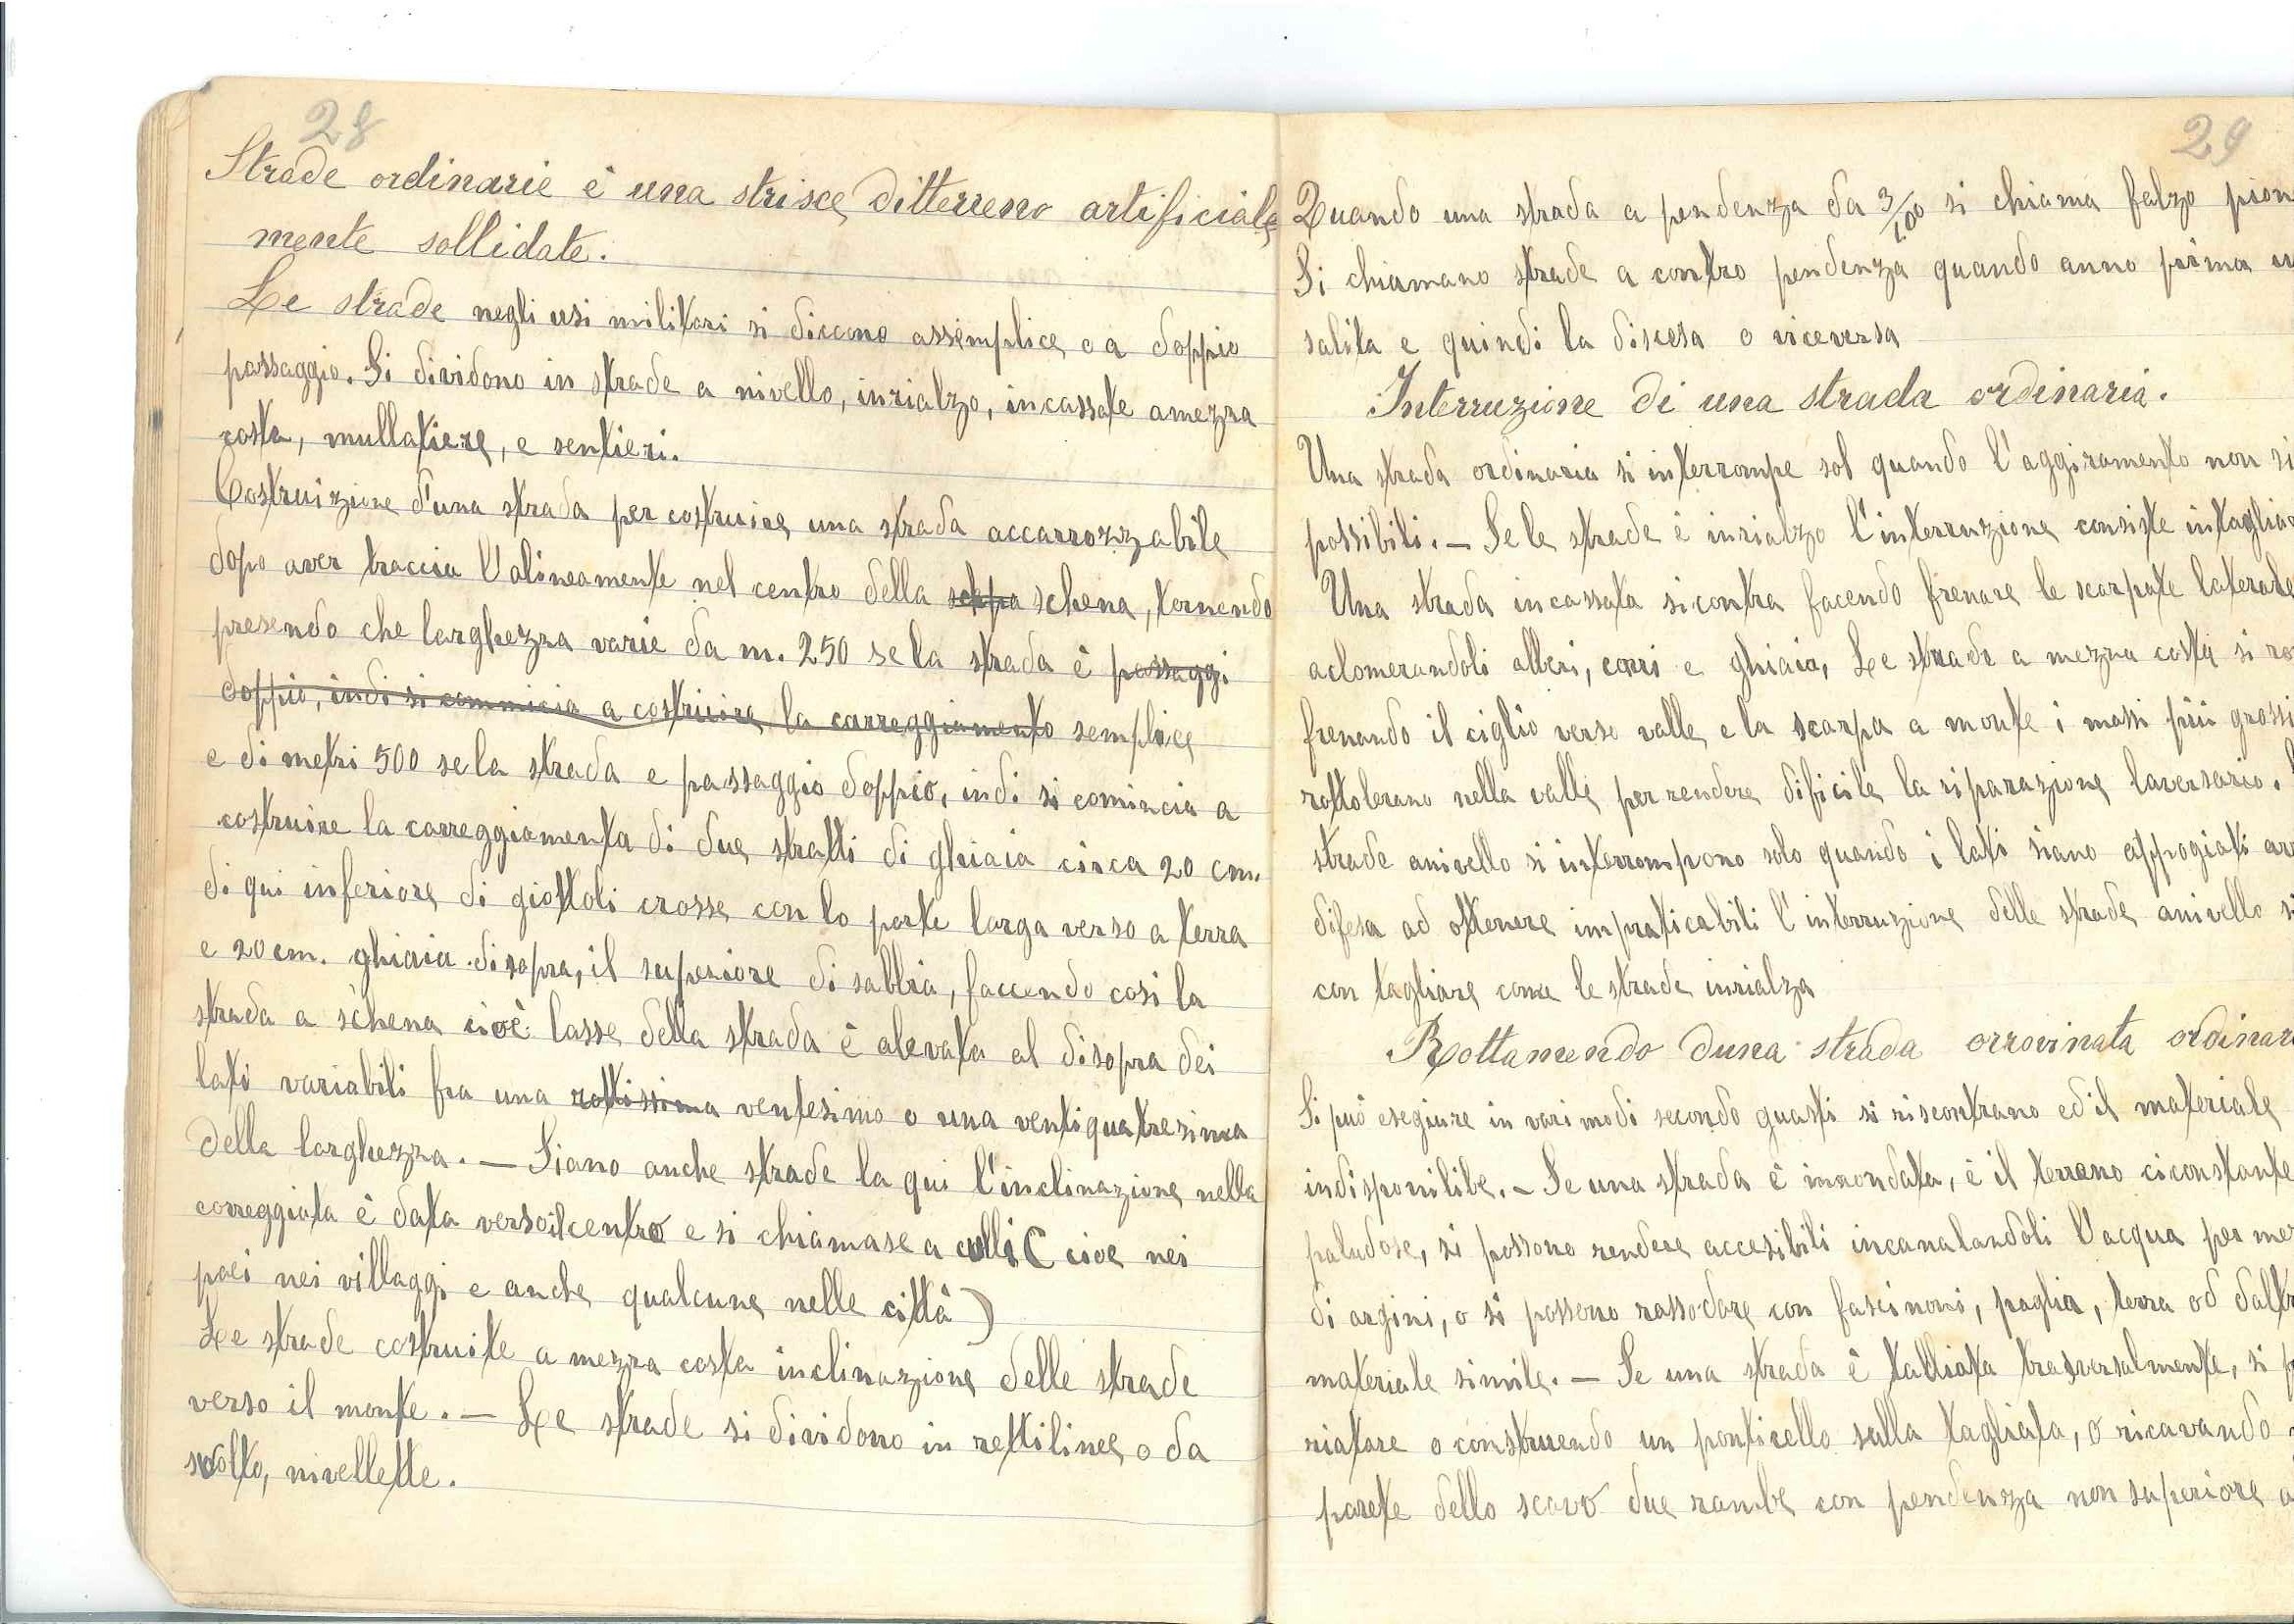 28
Strade ordinarie è una strisce ditterreno artificiale
mente sollidate.
Le strade negli usi militari si dicono assemplice o a doppio
passaggio. Si dividono in strade a nivello, inrialzo, incassate amezza
costa, mullatiere, e sentieri.
Costruizione d'una strada per costruire una strada accarrozzabile
dopo aver traccia l'alineamente nel centro della schena, tornendo
presendo che larghezza varie da m. 250 se la strada è passaggi
doppio, indi si commicia a costruire la carreggiamento semplice
e di metri 500 se la strada e passaggio doppio, indi si comincia a
costruire la carreggiamenta di due stratti di ghiaia circa 20 cm.
di qui inferiore di giottoli crosse con lo parte larga verso a terra
e 20 cm. ghiaia disopra, il superiore di sabbia, faccendo così la
strada a schena cioè lasse della strada è alevata al disopra dei
lati variabili fra una rottissima ventesimo o una ventiquatresima
della larghezza. — Siano anche strade la qui l'inclinazione nella
correggiata è data versoilcentro e si chiamase a culli C cioe nei
paei nei villaggi e anche qualcune nelle città)
Le strade costruite a mezza costa inclinazione delle strade
verso il monte. — Le strade si dividono in rettilinee o da
svolto, nivellette.
29
Quando una strada a pendenza da 3/100 si chiama falzo pian
Si chiamano strade a contro pendenza quando anno prima u
salita e quindi la discesa o viceversa
Interruzione di una strada ordinaria.
Una strada ordinaria si interrompe sol quando l'aggiramento non si
possibili. — Se le strade è inrialzo l'interruzione consiste intaglia
Una strada incassata sicontra facendo frenare le scarpate laterale
aclomerandoli alberi, carri e ghiaia, Le strade a mezza costa si ro
frenando il ciglio verso valle e la scarpa a monte i massi più grossi
rottolerano nella valle per rendere dificile la riparazione laversario.
strade anivello si interrompono solo quando i lati siano appogiati arr
difesa ad ottenere impraticabili l'interruzione delle strade anivello si
con tagliare come le strade inrialza
Rottamendo duna strada orrovinata ordinar
Si può esegiure in vari modi secondo guasti si riscontrano ed il materiale
indisponilibe. — Se una strada è innondata, è il terreno ciconstante
paludose, si possono rendere accesibili incanalandoli l'acqua per me
di argini, o si possono rassodare con fascinoni, paglia, terra od daltr
materiale simile. — Se una strada è talliata trasversalmente, si p
riatare o construendo un ponticello sulla tagliata, o ricavando
parete dello scavo due rambe con pendenza non superiore a